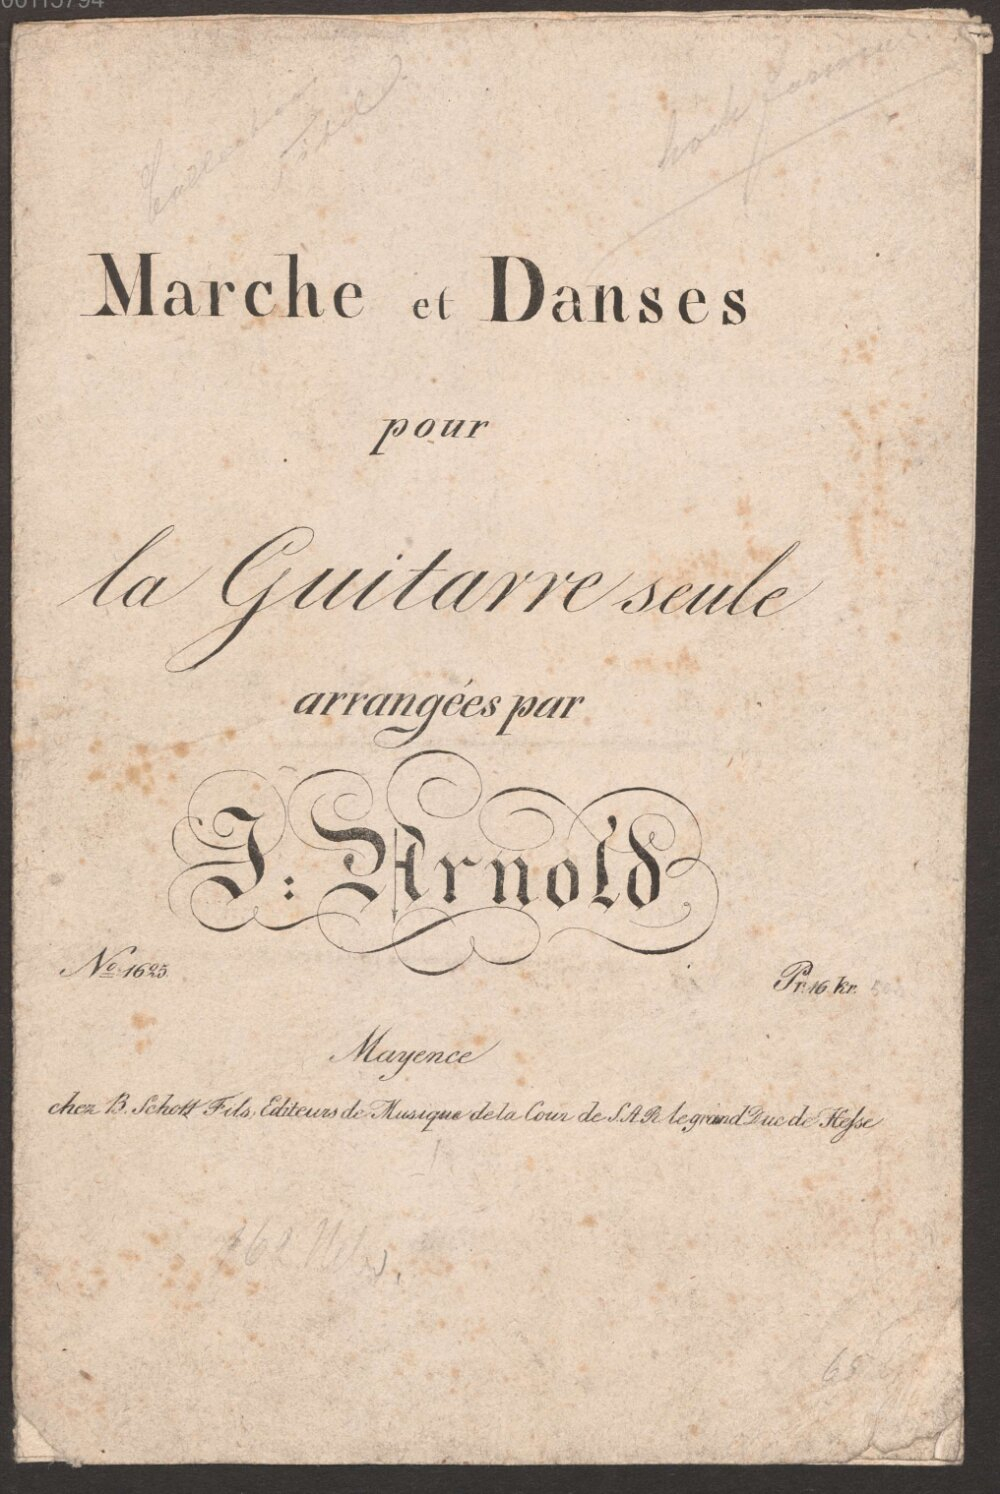 00115794
Marche et Danses
pour
la Guitarre seule
arrangées par
J: Arnold
No. 1625
Pr. 16 kr.
Mayence
chez B. Schott Fils, Editeurs de Musique de la Cour de S.A.R. le grand Duc de Hesse